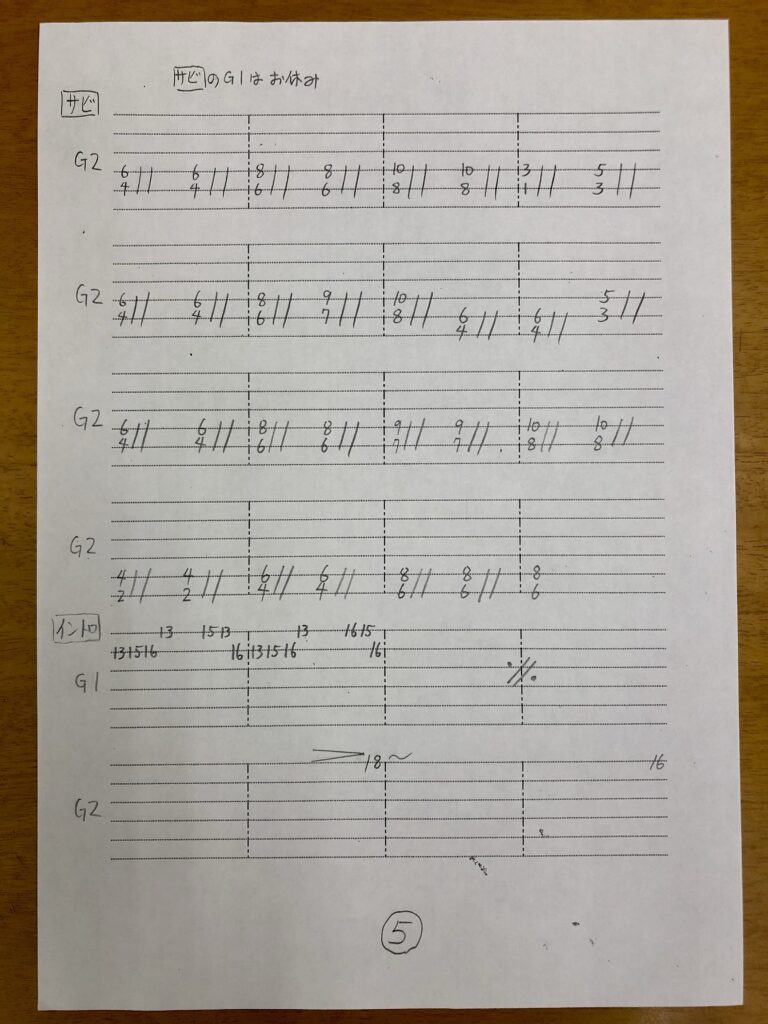 サビのG1はお休み
サビ
G2
6 6 8 8 10 10 3 5
4 4 6 6 8 8 1 3
G2
6 6 8 9 10 5
4 4 6 7 8 6 6 3
4 4
G2
6 6 8 8 9 9 10 10
4 4 6 6 7 7 8 8
G2
4 4 6 6 8 8 8
2 2 4 4 6 6 6
イントロ
13 15 13 13 16 15
13 15 16 16 13 15 16 16
G1
18 16
G2
5